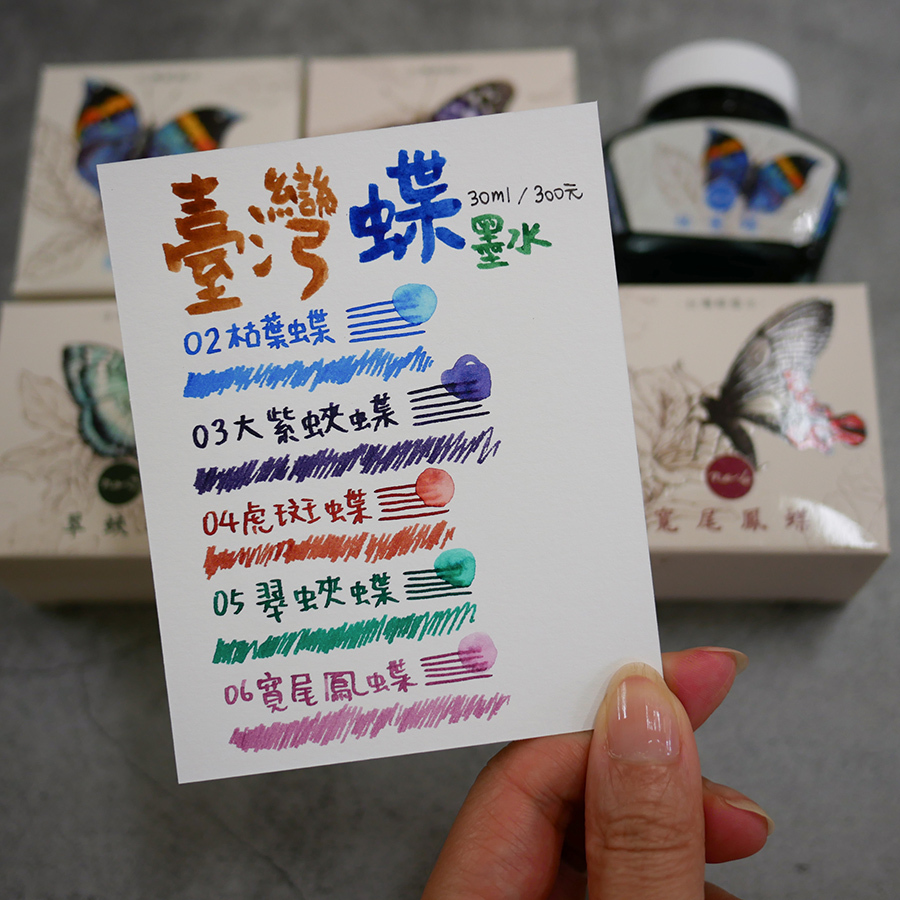 臺灣蝶
30ml / 300元
墨水
02枯葉蝶
03大紫蛺蝶
04虎斑蝶
05翠蛺蝶
06寬尾鳳蝶
no.6
寬尾鳳蝶